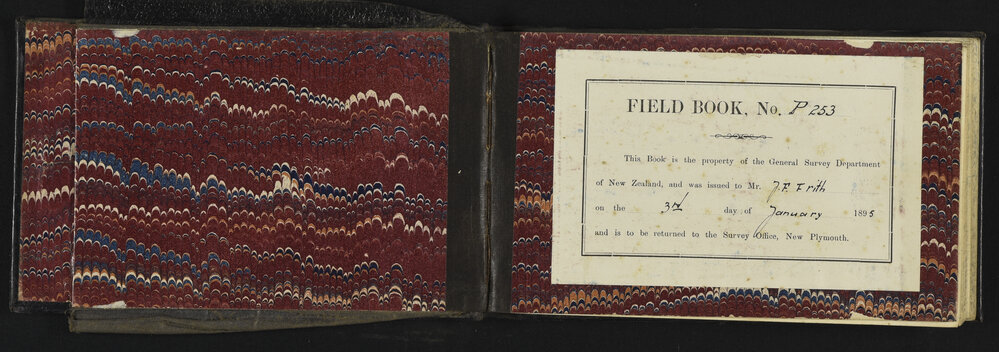 FIELD BOOK, No. P 253
This Book is the property of the General Survey Department
of New Zealand, and was issued to Mr. J. F. Frith
on the 3rd day of January 1895
and is to be returned to the Survey Office, New Plymouth.